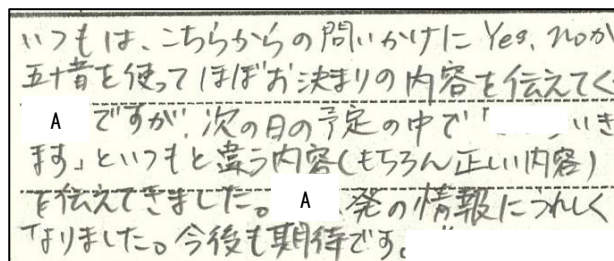 いつもは、こちらからの問いかけに Yes、noか
五十音を使ってほぼお決まりの内容を伝えてく
A ですが、次の日の予定の中で「 いき
ます」といつもと違う内容(もちろん正しい内容)
を伝えてきました。 A 発の情報にうれしく
なりました。今後も期待です。